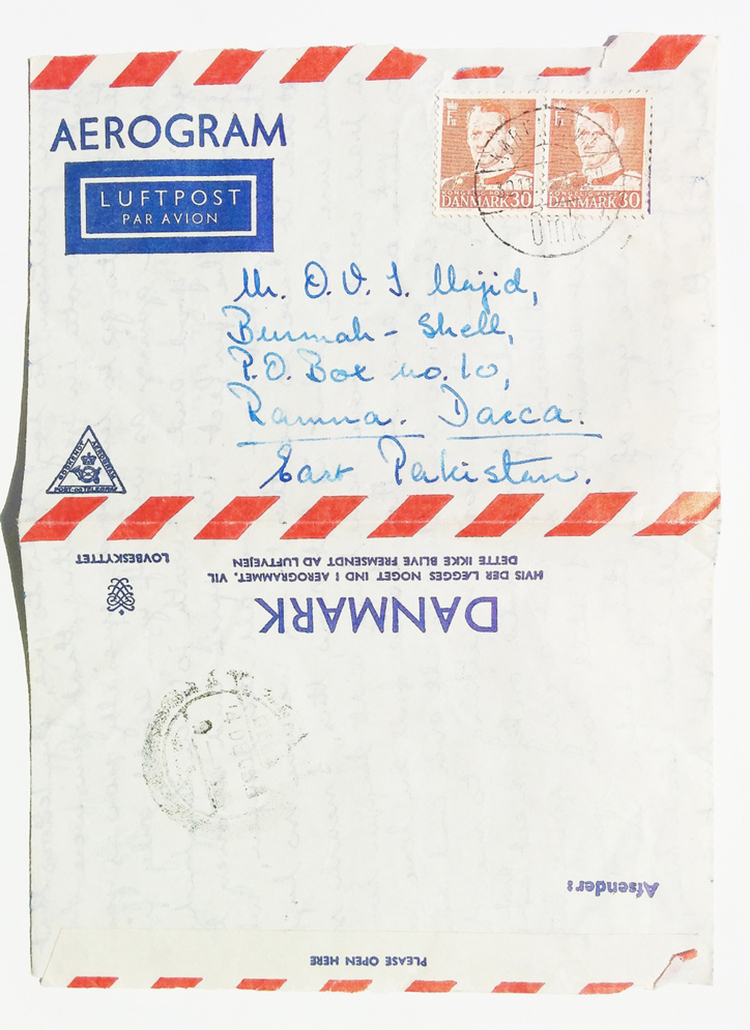 AEROGRAM
LUFTPOST
PAR AVION
DANMARK 30
DANMARK 30
Omk
Mr. O. V. S. Majid,
Burmah - Shell,
P.O. Box no. 10,
Ramna. Dacca.
East Pakistan.
GODKENDT AEROGRAM
POST- OG TELEGRAFV.
HVIS DER LÆGGES NOGET IND I AEROGRAMMET, VIL
DETTE IKKE BLIVE FREMSENDT AD LUFTVEJEN
LOVBESKYTTET
DANMARK
Afsender:
PLEASE OPEN HERE